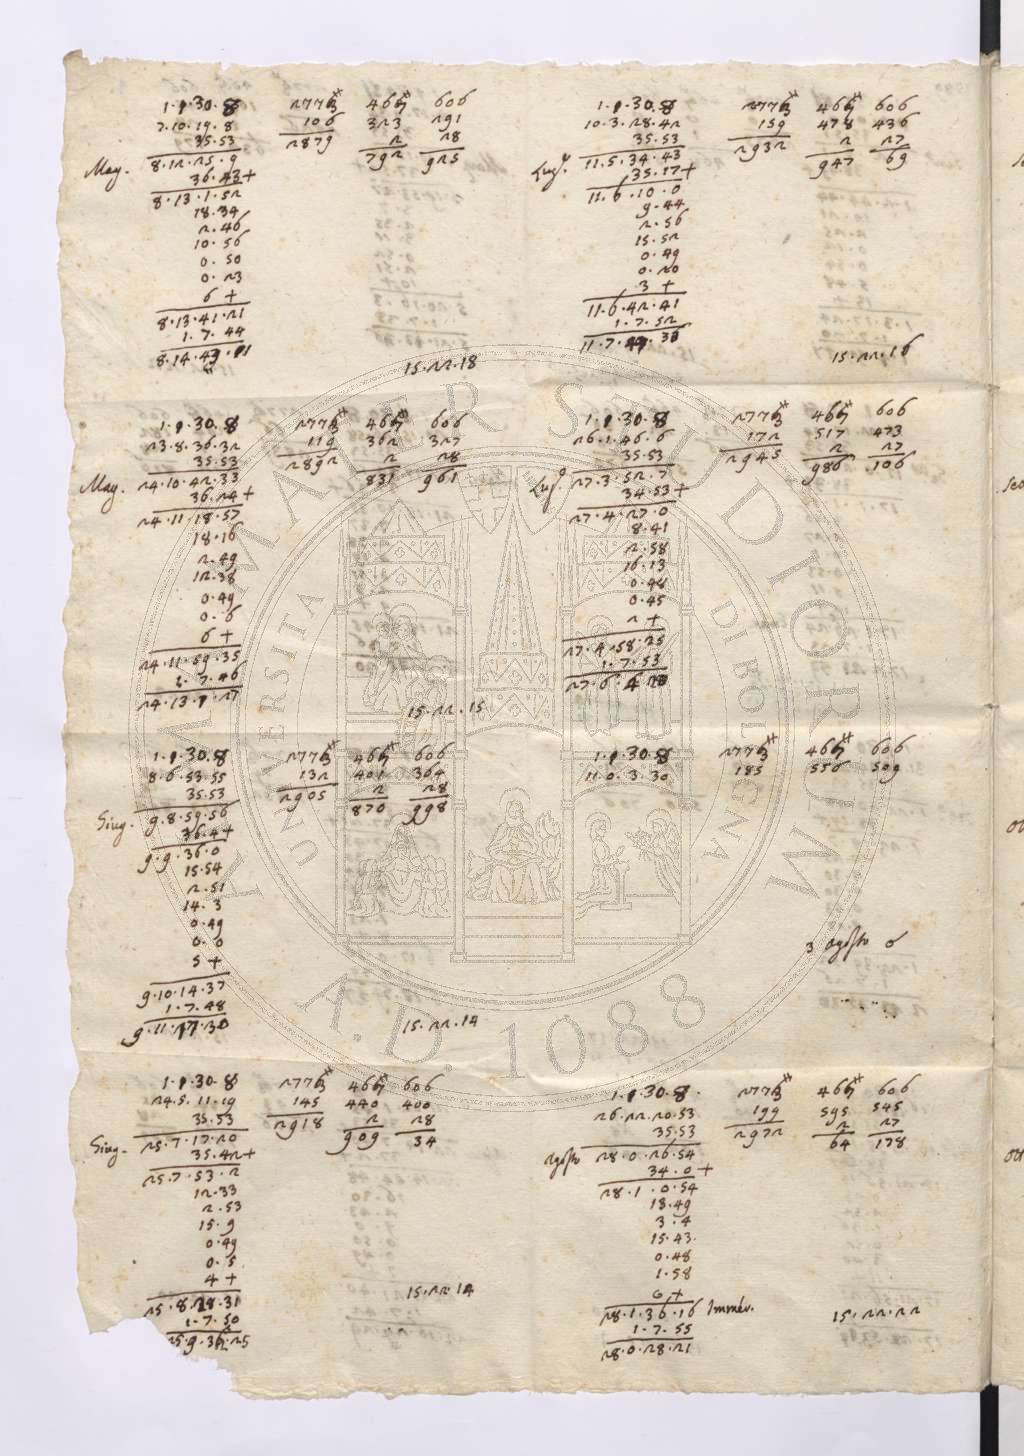 1·9·30·8 2776* 466* 606
7·10·19·8 106 323 291
35·53 2879 2 28
Mag. 8·12·25·9 792 925
36·43+
8·13·1·52
18·34
2·46
10·56
0·50
0·23
6+
8·13·41·21
1·7·44
8·14·49·
15·22·18
1·9·30·8 2776* 466* 606
23·8·36·32 119 362 327
35·53 2892 2 28
Mag. 24·10·42·33 831 961
36·24+
24·11·18·57
18·16
2·49
12·38
0·49
0·6
6+
24·11·59·35
1·7·46
24·13·9·27
15·22·15
1·9·30·8 2776* 466* 606
8·6·53·55 132 401 364
35·53 2905 2 28
Giug. 9·8·59·56 870 998
36·4+
9·9·36·0
15·54
2·51
14·3
0·49
0·0
5+
9·10·14·37
1·7·48
9·11·17·30
15·22·14
1·9·30·8 2776* 466* 606
24·5·11·19 145 440 400
35·53 2918 2 28
Giug. 25·7·17·20 909 34
35·42+
25·7·53·2
12·33
2·53
15·9
0·49
0·5
4+
25·8·28·31
1·7·50
25·9·36·25
15·22·14
1·9·30·8 2776* 466* 606
10·3·28·42 159 478 436
35·53 2932 2 27
Lugº. 11·5·34·43 947 69
35·17+
11·6·10·0
9·44
2·56
15·52
0·49
0·20
3+
11·6·42·41
1·7·52
11·7·49·38
15·22·16
1·9·30·8 2776* 466* 606
26·1·46·6 172 517 473
35·53 2945 2 27
Lugº. 27·3·52·7 986 106
34·53+
27·4·27·0
8·41
2·58
16·13
0·48
0·45
2+
27·4·58·25
1·7·53
27·6·4·20
1·9·30·8 2776* 466* 606
11·0·3·30 185 556 509
3 Agosto 6
1·9·30·8 2776* 466* 606
26·22·20·53 199 595 545
35·53 2972 2 27
Agosto 28·0·26·54 64 178
34·0+
28·1·0·54
13·49
3·4
15·43
0·48
1·58
6+
28·1·36·16 Immer.
1·7·55
28·0·28·21
15·22·22
ALMA MATER STUDIORUM
UNIVERSITÀ DI BOLOGNA
A.D. 1088